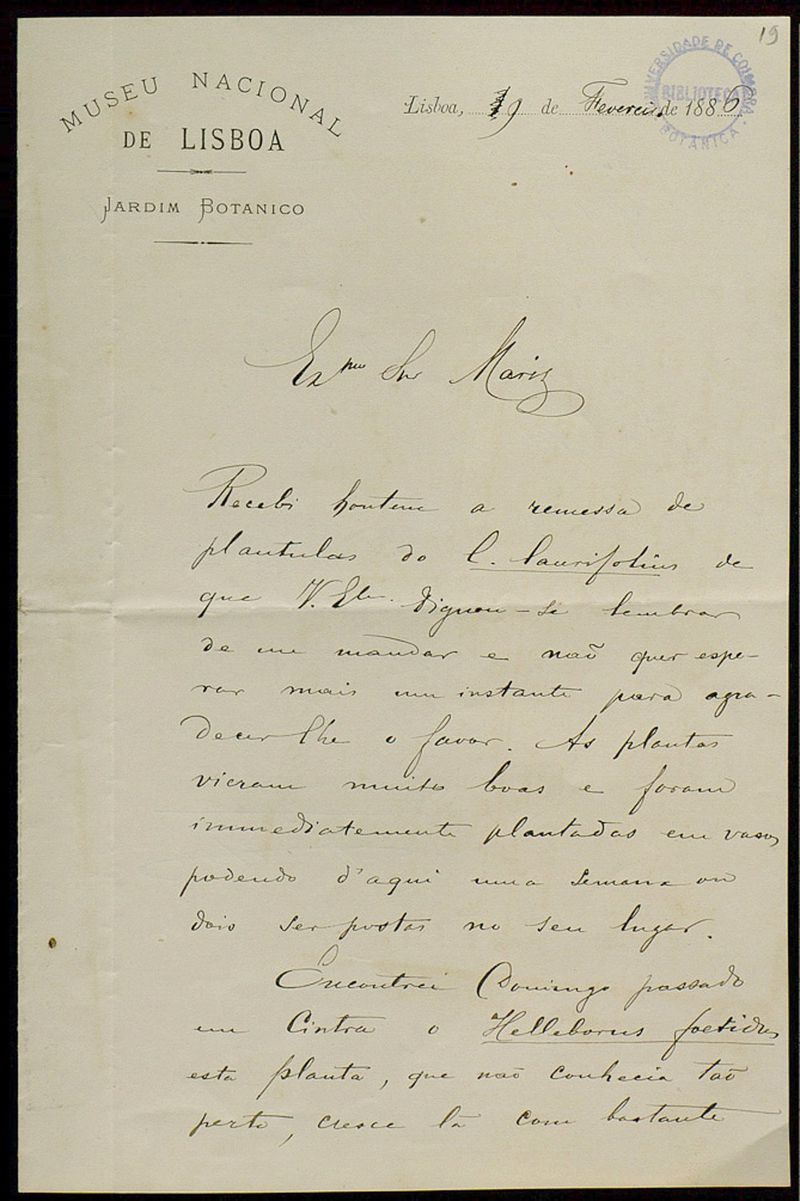 19
MUSEU NACIONAL
DE LISBOA
JARDIM BOTANICO
Lisboa, 19 de Fevereiro de 1886
UNIVERSIDADE DE COIMBRA
BIBLIOTECA
BOTANICA
Exmo Snr Mariz
Recebi hontem a remessa de
plantulas do C. laurifolius de
que V. Exa. dignou-se lembrar
de me mandar e não quer espe-
rar mais um instante para agra-
decer lhe o favor. As plantas
vieram muito boas e foram
immediatemente plantadas em vasos
podendo d'aqui uma semana ou
dois ser postas no seu lugar.
Encontrei Domingo passado
em Cintra o Helleborus foetidus
esta planta, que não conhecia tão
perto, cresce lá com bastante